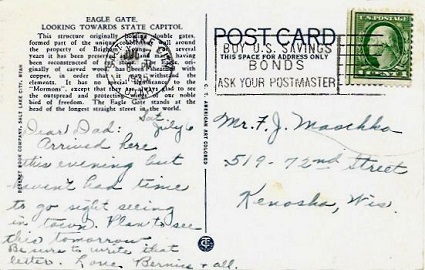 EAGLE GATE,
LOOKING TOWARDS STATE CAPITOL.
This structure originally double gates,
formed part of the unique wall around
the property of Brigham Young. several
years it has been preserved land mark, having
been reconstructed on large The eagle,
originally of carved wood has been with
copper, in order that it withstand the
elements. It is of no significance to the
"Mormons", except that they are always glad to see
the outspread and protecting wings of our noble
bird of freedom. The Eagle Gate stands at the
head of the longest straight street in the world.
DESERET BOOK COMPANY, SALT LAKE CITY, UTAH
C. T. AMERICAN ART COLORED
POST CARD
THIS SPACE FOR ADDRESS ONLY
BUY U.S. SAVINGS
BONDS
ASK YOUR POSTMASTER
U.S. POSTAGE
1 CENT 1
Sat.
July 6
Dear Dad:
Arrived here
this evening but
haven't had time
to go sight seeing
in town. Plan to see
this tomorrow.
Be sure to write that
letter. Love Bernice + all.
Mr. F. J. Maschka
519-72nd Street
Kenosha, Wis.